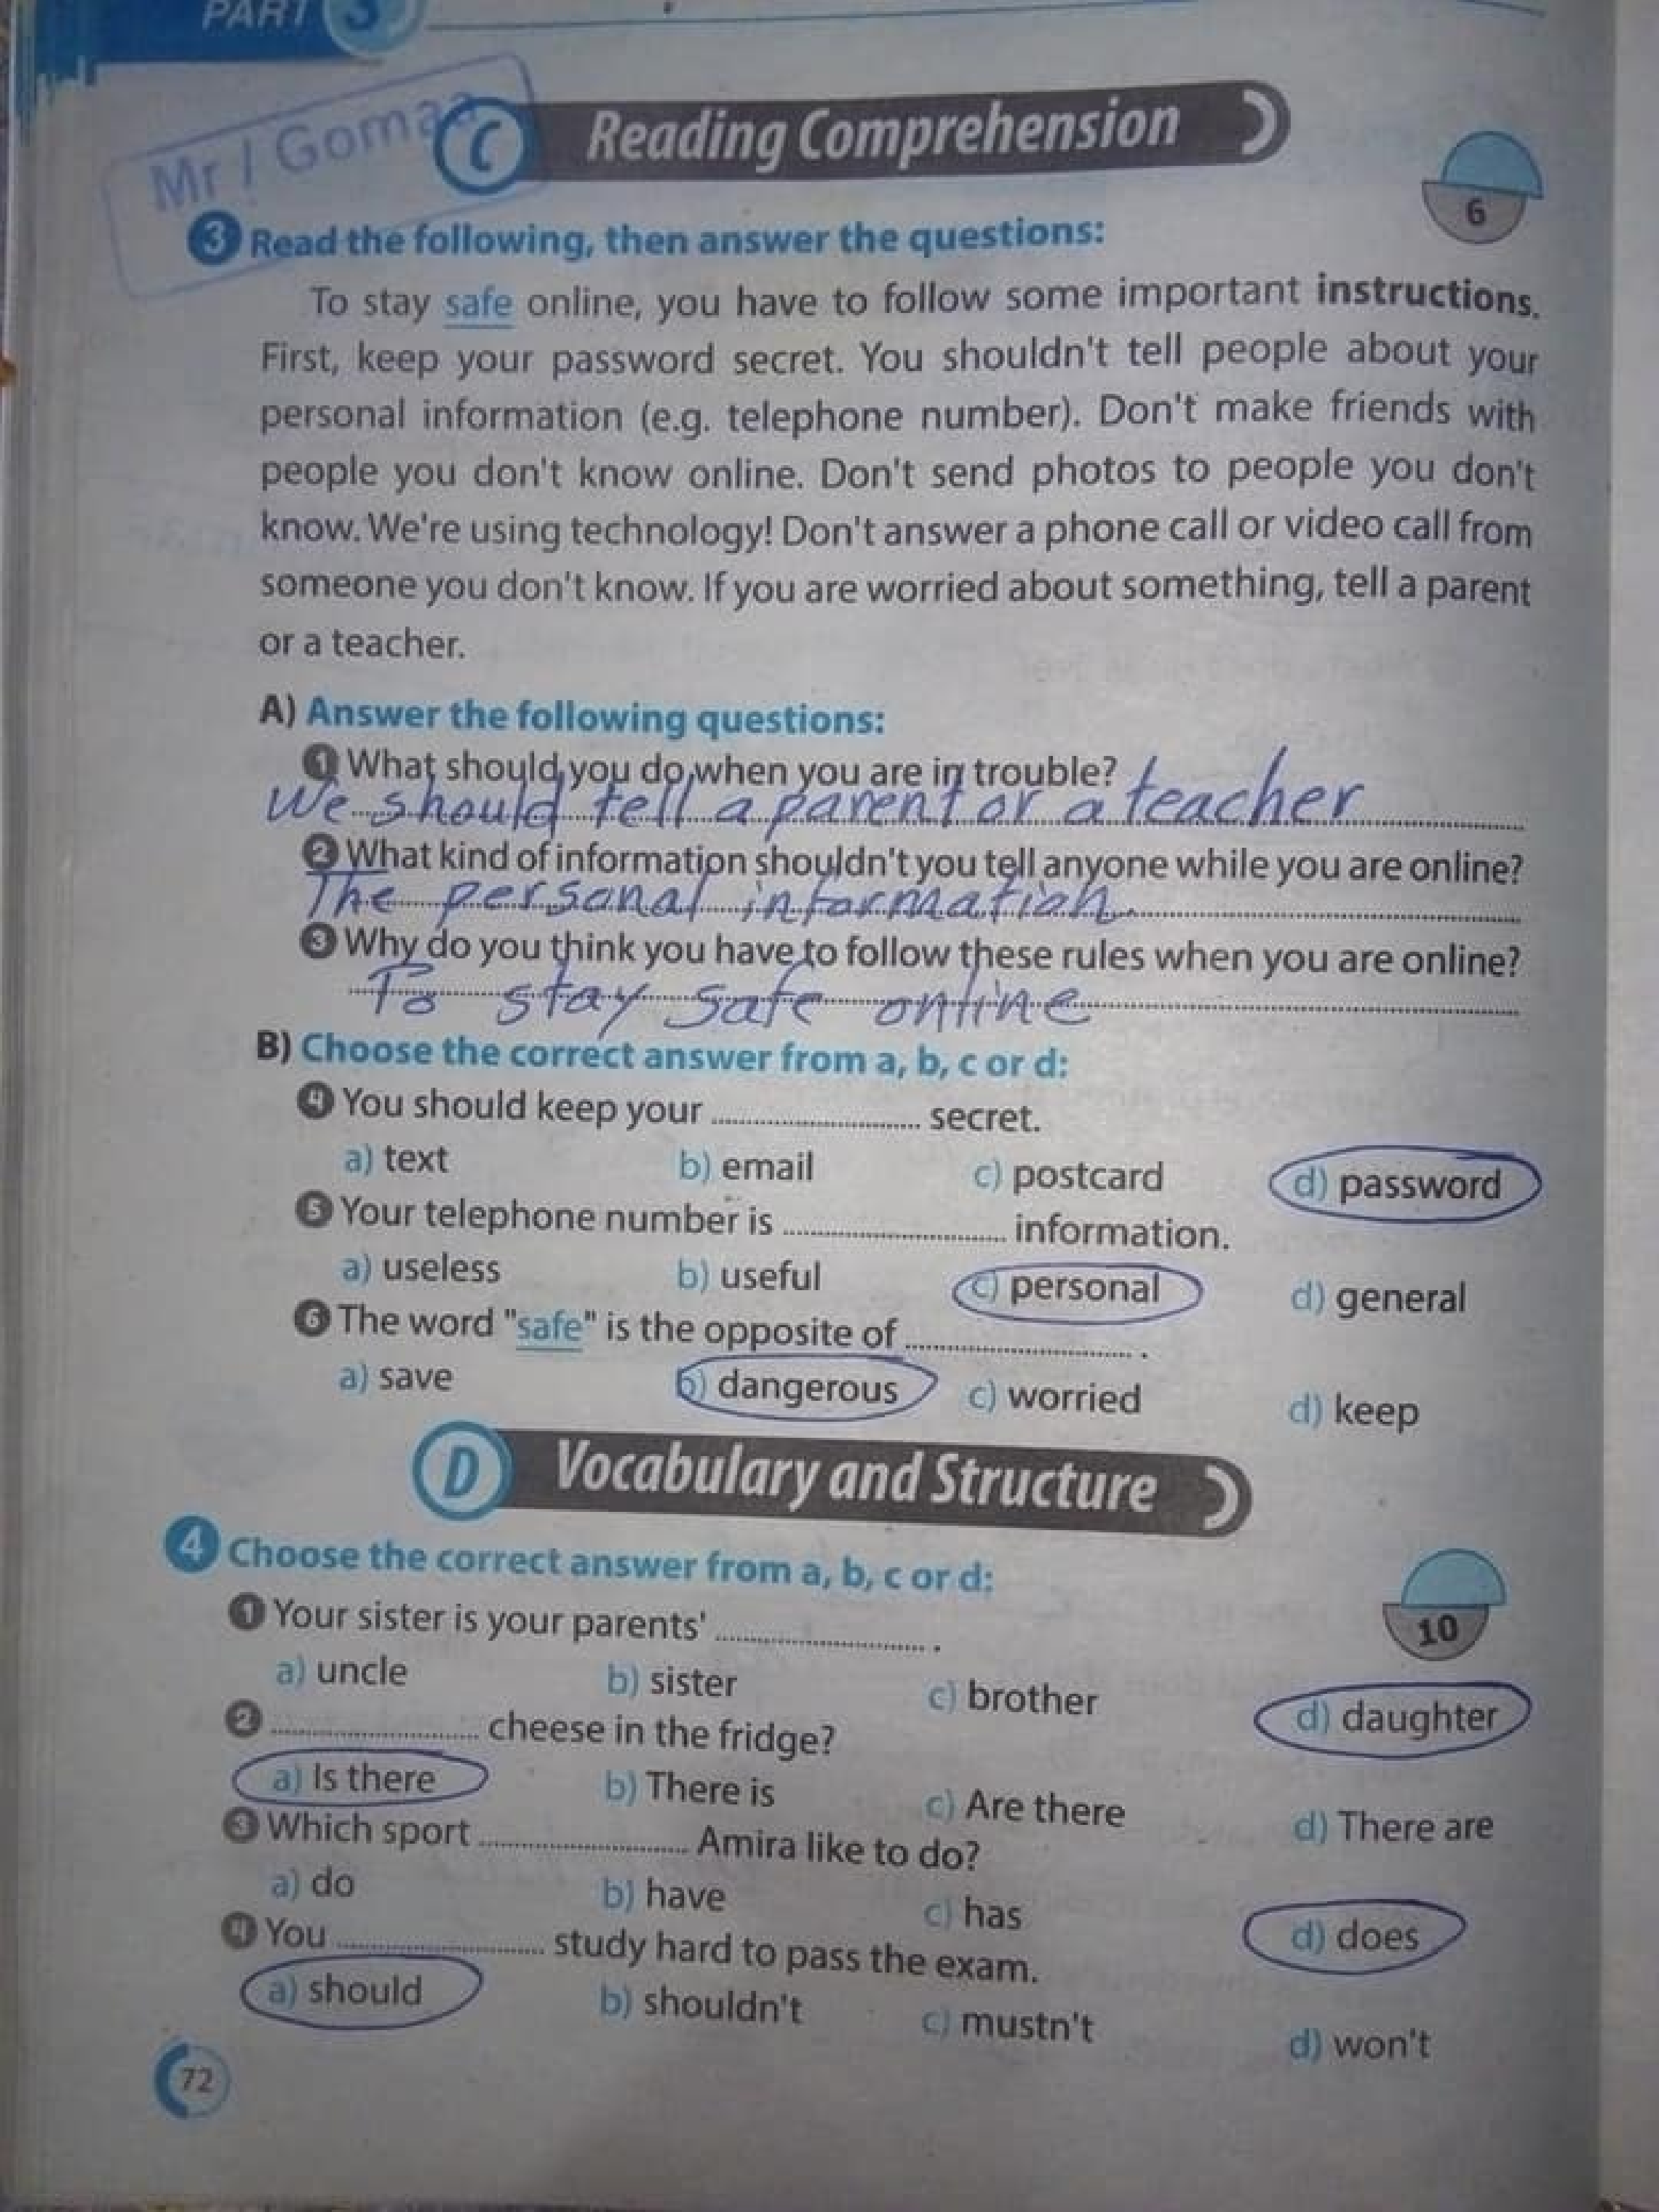 PART 3
Mr / Gomaa
C Reading Comprehension
6
3 Read the following, then answer the questions:
To stay safe online, you have to follow some important instructions.
First, keep your password secret. You shouldn't tell people about your
personal information (e.g. telephone number). Don't make friends with
people you don't know online. Don't send photos to people you don't
know. We're using technology! Don't answer a phone call or video call from
someone you don't know. If you are worried about something, tell a parent
or a teacher.
A) Answer the following questions:
1 What should you do when you are in trouble?
We should tell a parent or a teacher
2 What kind of information shouldn't you tell anyone while you are online?
The personal information.
3 Why do you think you have to follow these rules when you are online?
To stay safe online
B) Choose the correct answer from a, b, c or d:
4 You should keep your .................... secret.
a) text b) email c) postcard d) password
5 Your telephone number is .................... information.
a) useless b) useful c) personal d) general
6 The word "safe" is the opposite of .................... .
a) save b) dangerous c) worried d) keep
D Vocabulary and Structure
4 Choose the correct answer from a, b, c or d:
10
1 Your sister is your parents' .................... .
a) uncle b) sister c) brother d) daughter
2 .................... cheese in the fridge?
a) Is there b) There is c) Are there d) There are
3 Which sport .................... Amira like to do?
a) do b) have c) has d) does
4 You .................... study hard to pass the exam.
a) should b) shouldn't c) mustn't d) won't
72